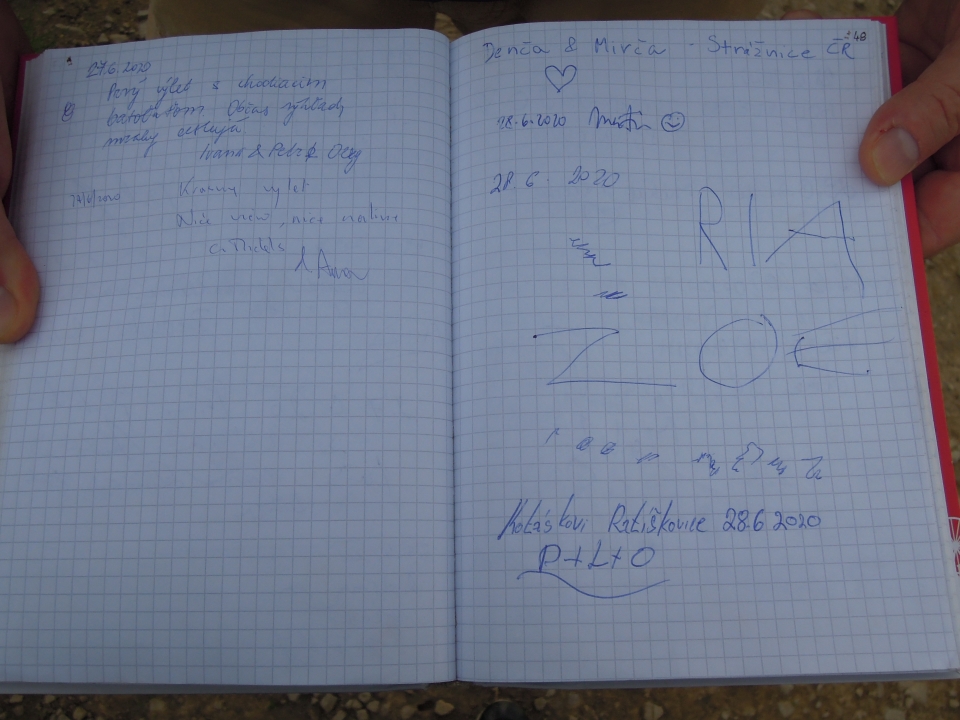 27.6.2020
Prvý výlet s chodiacim
batoľaťom. Občas výhľady
mraky
Ivana & Peter
Krásny výlet
Nice view, nice
& Anna
Denča & Mirča - Strážnice ČR
48
28.6.2020 Martin
28.6. 2020
RIA
ZOE
Kotáskovi Ratíškovice 28.6.2020
P+L+O